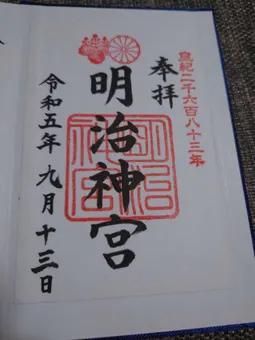 皇紀二千六百八十三年
奉拝
明治神宮
令和五年 九月十三日